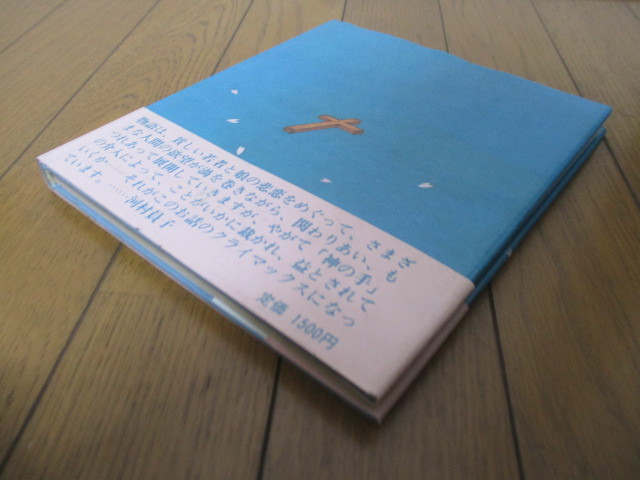 物語は、貧しい若者と娘の悲恋をめぐって、さまざ
まな人間の欲望が渦を巻きながら、関わりあい、も
つれあって展開していきますが、やがて「神の手」
の介入によって、ことがいかに裁かれ、益とされて
いくか——それがこのお話のクライマックスになっ
ています。……河村昌子
定価 1500円